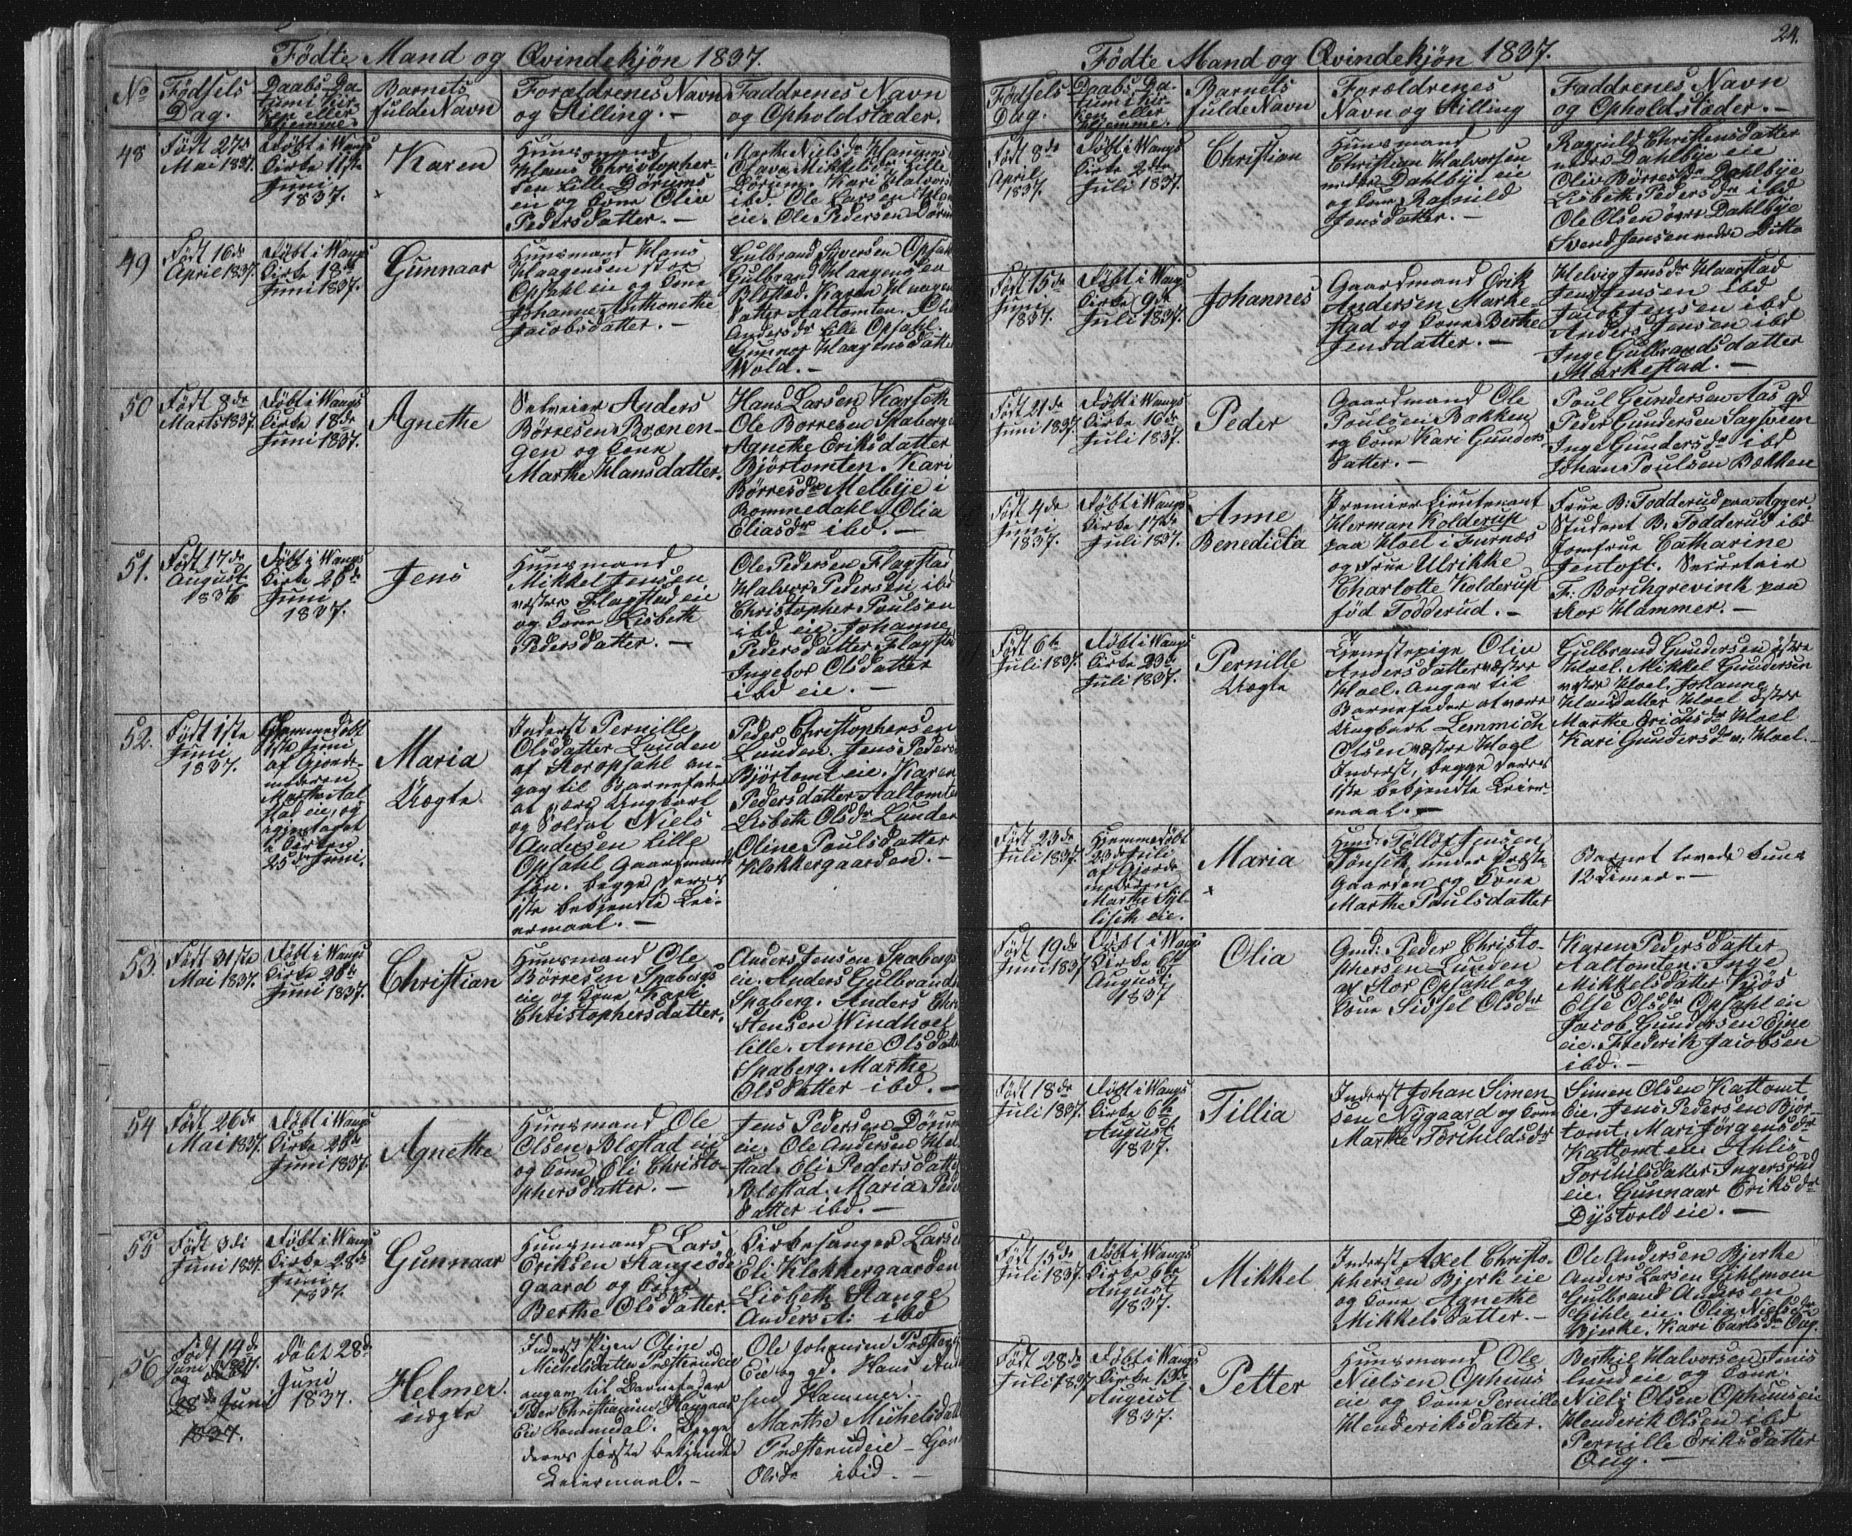 Fødte Mand og Qvindekjøn 1837.
No
Fødsels Dag.
Daabs-Datum i Kirken eller Hjemme.
Barnets fulde Navn
Forældrenes Navn og Stilling. —
Faddrenes Navn og Opholdstæder.
48
Født 27de
Mai 1837.
Døbt i Wangs
Kirke 11te
Juni
1837.
Karen
Huusmand
Hans Christopher
sen Lille Dørums
eie og Kone Olia
Pedersdatter. —
Marthe Nielsdr
Olava Mikkelsdr Lille
Dørum. Kari Halvors
ibd. Ole Larsen
eie. Ole Pedersen Dørum
49
Født 16de
April 1837.
Døbt i Wangs
Kirke 18de
Juni 1837.
Gunnaar
Huusmand Hans
Haagensen Stor
Opsahl eie og Kone
Johanne Anthonethe
Jacobsdatter. —
Gulbrand Iversen Opsahl
Gulbrand Haagensen
Blæstad. Karen Haagens
datter Aaltomten. Olia
Andersdr Lille Opsahl.
Gunnor Haagensdatter
Wold. —
50
Født 8de
Marts 1837.
Døbt i Wangs
Kirke 18de
Juni 1837.
Agnethe
Selveier Anders
Børresen Brænen-
gen og Kone
Marthe Hansdatter.
Hans Larsen Karset
Ole Borresen Spaberg
Agnethe Eriksdatter
Bjørtomten. Kari
Børresdr Melbye i
Rommedahl. Olia
Eliasdr ibd. —
51.
Født 17de
August
1836
Døbt i Wangs
Kirke 26de
Juni
1837.
Jens
Huusmand
Mikkel Jensen
vestre Flagstad eie
og Kone Lisbeth
Pedersdatter. —
Ole Pedersen Flagstad
Halvor Pedersen ibd
Christopher Poulsen
ibd eie. Johanne
Pedersdatter Flagstad
Ingebor Olsdatter
ibd eie. —
52.
Født 1ste
Juni
1837.
Hjemmedøbt
1ste Juni
af Gjorde-
moderen
Marthe Aal
stad eie, og
i Kirken
25de Juni.
Maria
Uægte.
Inderst Pernille
Olsdatter Lunden
af Storopsahl an-
gav til Barnefader
at være Ungkarl
og Soldat Niels
Andersen Lille
Opsahl Gaardmands
søn. begge deres
1ste bekjendte Lei-
ermaal. —
Peder Christophersen
Lunden. Jens Peders
Bjørtomt eie. Karen
Pedersdatter Aaltomten
Lisbeth Olsdr Lunden
Oline Poulsdatter
Klokkergaarden. —
53.
Født 31ste
Mai 1837.
Døbt i Wangs
Kirke 28de
Juni 1837.
Christian
Huusmand Ole
Børresen Spabergs
eie og Kone Kari
Christophersdatter.
Anders Jenson Spabergs
eie. Anders Gulbrands
Spaberg. Anders Chri
stensen Windhoel
lille. Anne Olsdatter
Spaberg. Marthe
Olsdatter ibd. —
54
Født 26de
Mai 1837.
Døbt i Wangs
Kirke 28de
Juni 1837.
Agnethe
Huusmand Ole
Olsen Blæstad eie
og Kone Eli Christo-
phersdatter. —
Jens Pedersen Dørum
eie. Ole Andersen
stad. Eli Pedersdatter
Blæstad. Maria Peders
datter ibd. —
55
Født 3di
Juni 1837.
Døbt i Wangs
Kirke 28de
Juni
1837.
Gunnaar
Huusmand Lars
Eriksen Stangeøde
gaard og Kone
Berthe Olsdatter.
Kirkesanger Larsen
Eli Klokkergaarden
Lisbeth Stange
Anders A: ibd
56
Født 14de
Juni 1837.
og
28de Juni
1837.
døbt 28de
Juni
1837.
Helmer.
uægte
Inderst Pigen Oline
Michelsdatter Præsterudeie
angav til Barnefader
Peder Christiansen
Eie Rommedal. Begge
deres første bekjendte
Leiermaal. —
Ole Johansen Præsterud
Eie og gd. Hans
Hammer. —
Marthe Michelsdatter
Præsterudeie —
Olsdr ibid. —
24.
Fødte Mand og Qvindekjøn 1837.
Fødsels Dag.
Daabs-Datum i Kirken eller Hjemme.
Barnets fulde Navn
Forældrenes Navn og Stilling
Faddrenes Navn og Opholdstæder. —
Født 8de
April
1837.
Døbt i Wangs
Kirke 2de
Juli 1837.
Christian
Huusmand
Christian Halvorsen
nedre Dahlbye eie
og Kone Ragnild
Jensdatter. —
Ragnild Christensdatter
nedre Dahlbye eie
Olia Børresdr Dahlbye
Lisbeth Pedersdr ibd
Ole Olsen øvre Dahlbye
Svend Jensen nedre Ditto
Født 15de
Juni
1837.
Døbt i Wangs
Kirke 9de
Juli 1837.
Johannes
Gaardmand Erik
Andersen Marke-
stad og Kone Berthe
Jensdatter. —
Helvig Jensdr Haarstad
Jens Jensen ibd
Jacob Jensen ibd
Anders Jensen ibd
Inge Gulbrandsdatter
Markestad. —
Født 21de
Juni 1837.
Døbt i Wangs
Kirke 16de
Juli 1837.
Peder
Gaardmand Ole
Poulsen Bækken
og Kone Kari Gunders
datter. —
Poul Gundersen Aas gd
Peder Gundersen Sagsveen
Inge Gundersdr ibd
Johan Poulsen Bækken
Født 4de
Juni
1837.
Døbt i Wangs
Kirke 17de
Juli 1837.
Anne
Benedicta
Premier Lieutenant
Herman Kolderup
paa Hoel i Furnæs
og Frue Ulrikke
Charlotte Kolderup
født Todderud. —
Frue B: Todderud paa Ager.
Student B: Todderud ibd
Jomfrue Catharine
Jentoft. Secretair
F: Borchgrevink paa
Stor Hammer. —
Født 6te
Juli 1837.
Døbt i Wangs
Kirke 23de
Juli 1837.
Pernille
Uægte
Tjenestepige Olia
Andersdatter vestre
Hoel. Angav til
Barnefader at være
Ungkarl Lemmich
Olsen vestre Hoel
Inderst, begge deres
1ste bekjendte Leier-
maal. —
Gulbrand Gundersen østre
Hoel. Mikkel Gundersen
vestre Hoel. Johanne
Hansdatter Hoel østre
Marthe Erichsdr Hoel
Kari Gundersdr v. Hoel.
Født 23de
Juli 1837.
Hjemmedøbt
23de Juli
af Gjorde-
moderen
Marthe Syl-
liseth eie.
Maria
Huusmd: Tollef Jensen
Tønset under Præste-
gaarden og Kone
Marthe Poulsdatter
Barnet levede kuns
12 Timer. —
Født 19de
Juni 1837
Døbt i Wangs
Kirke 6te
August
1837
Olia
Gmd: Peder Christo-
phersen Lunden
af Stor Opsahl og
Kone Sidsel Olsdr
Karen Pedersdatter
Aaltomten. Inge
Mikkelsdatter Kjøs
Else Olsdr Opsahl eie
Jacob Gundersen Eine
eie. Frederik Jacobsen
ibd. —
Født 18de
Juli 1837.
Døbt i Wangs
Kirke 6te
August
1837.
Tillia
Inderst Johan Simen
sen Nygaard og Kone
Marthe Torchildsdr
Simen Olsen Kattomt
eie. Jens Pedersen Bjør-
tomt. Mari Jørgensdr
Kattomt eie. Ahlis
Torchilsdatter Ingersrud
eie. Gunnaar Eriksdr
Dystvold eie. —
Født 15de
Juli 1837.
Døbt i Wangs
Kirke 6te
August
1837.
Mikkel
Inderst Axel Christo-
phersen Bjerk eie
og Kone Agnethe
Mikkelsdatter. —
Ole Andersen Bjerke
Anders Larsen Gihlmoen
Gulbrand Andersen
Gihle eie. Olia Nielsdr
Bjerke. Kari Carlsdr Oug.
Født 28de
Juli 1837
Døbt i Wangs
Kirke 13de
August
1837.
Petter
Huusmand Ole
Nielsen Ophuus
eie og Kone Pernille
Henderiksdatter.
Berthil Halvorsen
lund eie og Kone.
Niels Olsen Ophuus eie
Henderik Olsen ibd
Pernille Eriksdatter
Oug. —